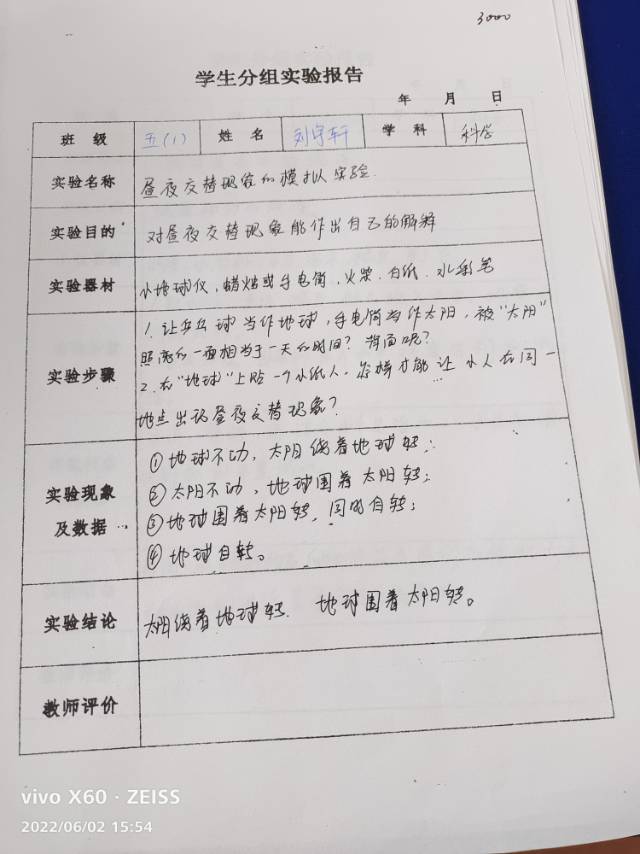 3000
学生分组实验报告
年 月 日
班 级 五(1) 姓 名 刘宇轩 学 科 科学
实验名称 昼夜交替现象的模拟实验
实验目的 对昼夜交替现象能作出自己的解释
实验器材 小地球仪，蜡烛或手电筒，火柴．白纸．水彩笔
1. 让乒乓球当作地球，手电筒当作太阳，被“太阳”
照亮的一面相当于一天的时间？背面呢？
实验步骤
2. 在“地球”上贴一个小纸人．怎样才能让小人在同一
地点出现昼夜交替现象？
①地球不动，太阳绕着地球转；
实验现象
②太阳不动，地球围着太阳转；
及数据
③地球围着太阳转，同时自转；
④地球自转。
实验结论 太阳绕着地球转．地球围着太阳转。
教师评价
vivo X60 · ZEISS
2022/06/02 15:54